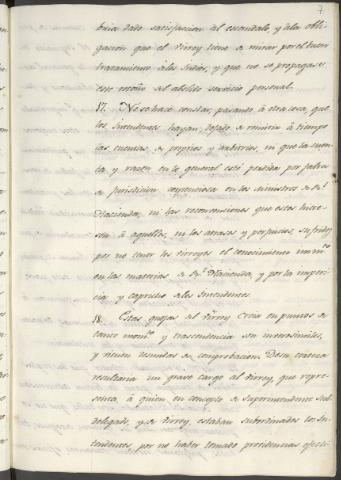 7
bria dado satisfaccion al escandalo, y á la obli-
gacion que el Virrey tiene á mirar por el buen
tratamiento á los Indios, y que no se propagase
este retoño del abolido servicio personal.
17. No se hace constar, pasando á otra cosa, que
los Intendentes hayan dejado de remitir á tiempo
las cuentas de propios y arbitrios, ni que la cuen-
ta y razon en lo general esté perdida por falta
de jurisdiccion contenciosa en los ministros de Rl.
Hacienda, ni las reconvenciones que estos hicie-
sen á aquellos, ni los atrasos y perjuicios, sufridos
por no tener los Virreyes el conocimiento inme.to
en las materias de Rl. Hacienda, y por la imperi-
cia y capricho de los Intendentes.
18. Estas quejas del Virrey Croix en puntos de
tanto mom.to y trascendencia son inverosimiles,
y vienen desnudas de comprobacion. De su certeza
resultaria un grave cargo al Virrey, que repre-
senta, á quien en concepto de Superintendente Sub-
delegado y de Virrey, estaban subordinados los In-
tendentes, por no haber tomado providencias efecti-